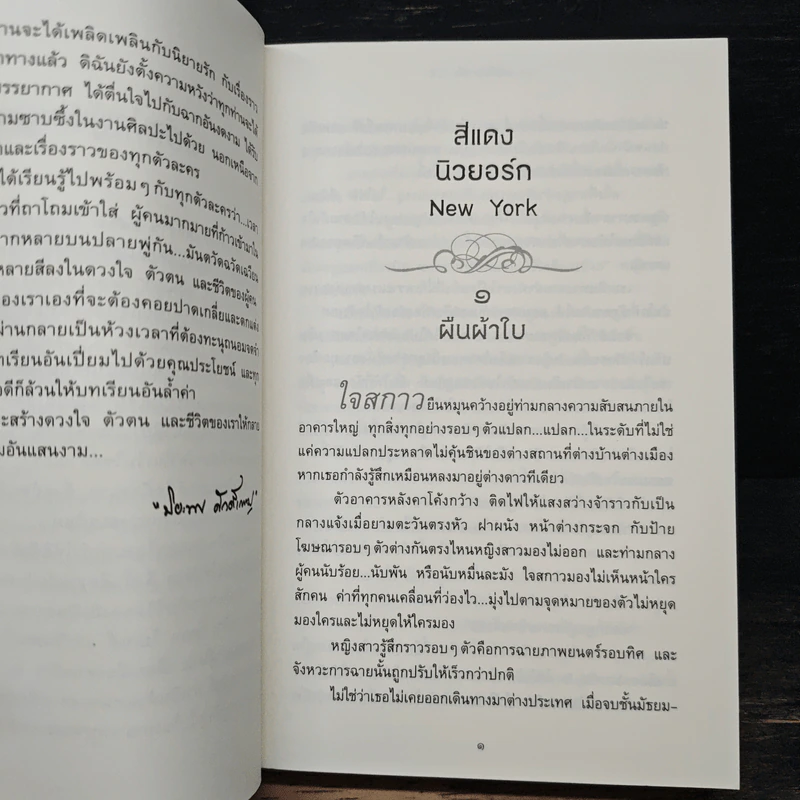 านจะได้เพลิดเพลินกับนิยายรัก กับเรื่องราว
ทางแล้ว ดิฉันยังตั้งความหวังว่าทุกท่านจะได้
บรรยากาศ ได้ตื่นใจไปกับฉากอันงดงาม ได้รับ
ามซาบซึ้งในงานศิลปะไปด้วย นอกเหนือจาก
และเรื่องราวของทุกตัวละคร
ได้เรียนรู้ไปพร้อมๆ กับทุกตัวละครว่า...เวลา
วที่ถาโถมเข้าใส่ ผู้คนมากมายที่ก้าวเข้ามาใน
ากหลายบนปลายพู่กัน...มันตวัดฉวัดเฉวียน
หลายสีลงในดวงใจ ตัวตน และชีวิตของผู้คน
องเราเองที่จะต้องคอยปาดเกลี่ยและตกแต่ง
ผ่านกลายเป็นห้วงเวลาที่ต้องทะนุถนอมจดจำ
เรียนอันเปี่ยมไปด้วยคุณประโยชน์ และทุก
ดีก็ล้วนให้บทเรียนอันล้ำค่า
ะสร้างดวงใจ ตัวตน และชีวิตของเราให้กลาย
อันแสนงาม...
สีแดง
นิวยอร์ก
New York
๑
ผืนผ้าใบ
ใจสกาวยืนหมุนคว้างอยู่ท่ามกลางความสับสนภายใน
อาคารใหญ่ ทุกสิ่งทุกอย่างรอบๆ ตัวแปลก...แปลก...ในระดับที่ไม่ใช่
แค่ความแปลกประหลาดไม่คุ้นชินของต่างสถานที่ต่างบ้านต่างเมือง
หากเธอกำลังรู้สึกเหมือนหลงมาอยู่ต่างดาวทีเดียว
ตัวอาคารหลังคาโค้งกว้าง ติดไฟให้แสงสว่างจ้าราวกับเป็น
กลางแจ้งเมื่อยามตะวันตรงหัว ฝาผนัง หน้าต่างกระจก กับป้าย
โฆษณารอบๆ ตัวต่างกันตรงไหนหญิงสาวมองไม่ออก และท่ามกลาง
ผู้คนนับร้อย...นับพัน หรือนับหมื่นละมัง ใจสกาวมองไม่เห็นหน้าใคร
สักคน ค่าที่ทุกคนเคลื่อนที่ว่องไว...มุ่งไปตามจุดหมายของตัวไม่หยุด
มองใครและไม่หยุดให้ใครมอง
หญิงสาวรู้สึกราวรอบๆ ตัวคือการฉายภาพยนตร์รอบทิศ และ
จังหวะการฉายนั้นถูกปรับให้เร็วกว่าปกติ
ไม่ใช่ว่าเธอไม่เคยออกเดินทางมาต่างประเทศ เมื่อจบชั้นมัธยม-
๑